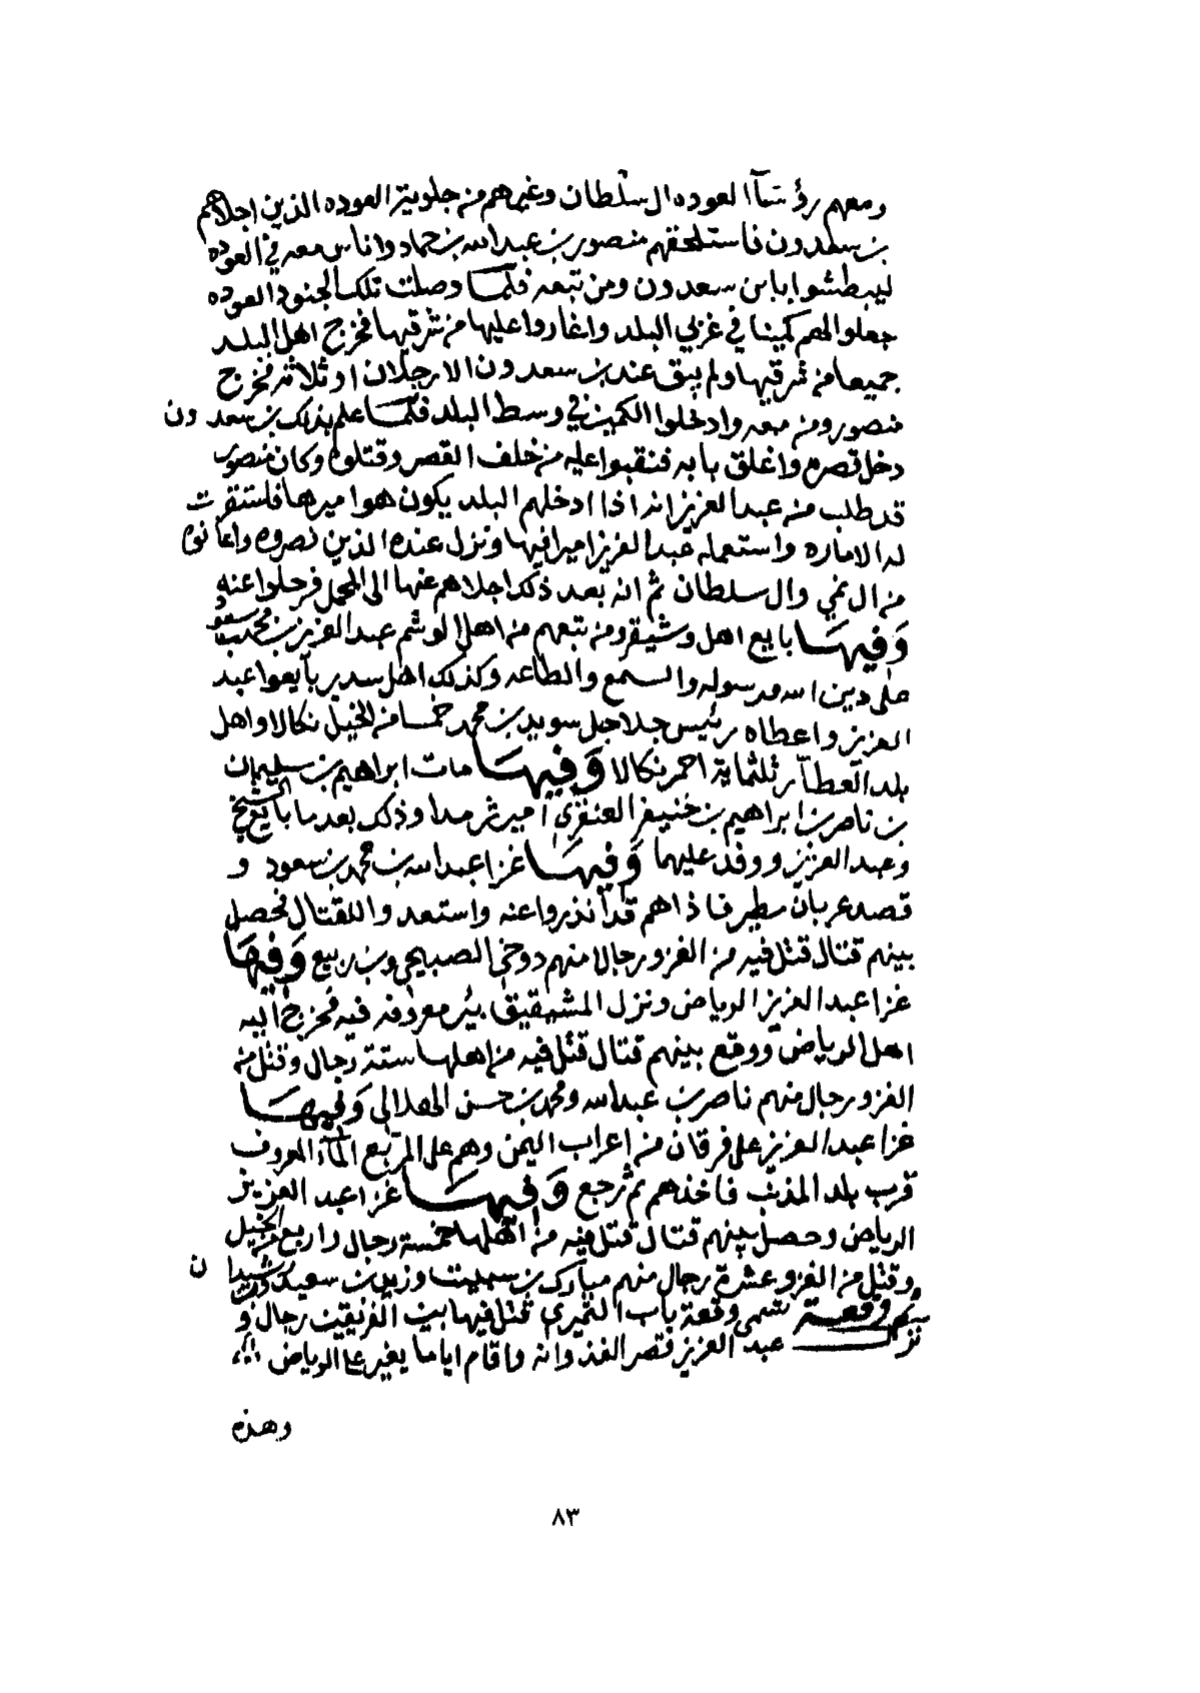 ومعهم رؤسآ العوده ال سلطان وغيرهم من جلوية العوده الذين اجلاهم
بن سعدون فاستلحقهم منصور بن عبدالله بن حماد واناس معه في العوده
ليبطشوا بابن سعدون ومن تبعه فلما وصلت تلك الجنود العوده
جعلوا لهم كمينا في غربي البلد واغاروا عليها من شرقيها فخرج اهل البلد
جميعا من شرقيها ولم يبق عند بن سعدون الا رجلان او ثلاثة فخرج
منصور ومن معه وادخلوا الكمين في وسط البلد فلما علم بذلك بن سعدون
دخل قصره واغلق بابه فنقبوا عليه من خلف القصر وقتلوه وكان منصور
قد طلب من عبدالعزيز انه اذا ادخلهم البلد يكون هو اميرها فاستقرت
له الاماره واستعمله عبدالعزيز اميرا فيها ونزل عنده الذين نصروه واعانوه
من ال نمي وال سلطان ثم انه بعد ذلك اجلاهم عنها الى المحمل فرحلوا عنه
وفيها بايع اهل وشيقر ومن تبعهم من اهل الوشم عبدالعزيز بن محمد بن سعود
على دين الله ورسوله والسمع والطاعه وكذلك اهل سدير بايعوا عبد
العزيز واعطاه رئيس جلاجل سويد بن محمد خمسا من الخيل نكالا واهل
بلد العطار ثلثماية احمر نكالا وفيها مات ابراهيم بن سليمان
بن ناصر بن ابراهيم بن خنيفر العنقري امير ثرمدا وذلك بعد ما بايع الشيخ
وعبد العزيز ووفد عليهما وفيها غزا عبدالله بن محمد بن سعود و
قصد عربان مطير فاذا هم قد انذروا عنه واستعدوا للقتال فحصل
بينهم قتال قتل فيه من الغزو رجالا منهم دوخي الصبيحي وبن ربيع وفيها
غزا عبدالعزيز الرياض ونزل المشيقيق بئر معروفه فيه فخرج اليه
اهل الرياض ووقع بينهم قتال قتل فيه من اهلها ستة رجال وقتل من
الغزو رجال منهم ناصر بن عبدالله ومحمد بن حسن الهلالى وفيها
غزا عبدالعزيز على فرقان من اعراب اليمن وهم على المربع المآء المعروف
قرب بلد المذنب فاخذهم ثم رجع وفيها غزا عبد العزيز
الرياض وحصل بينهم قتال قتل فيه من اهلها خمسة رجال واربع من الخيل
وقتل من الغزو عشرة رجال منهم مبارك بن سبيت وزيد بن سعيد ورشيدان
ثم وقعة تسمى وقعة باب الثميري قتل فيها بين الفريقين رجال و
نزل عبد العزيز قصر الغذوانه واقام اياما يغير على الرياض
وهذه
٨٣